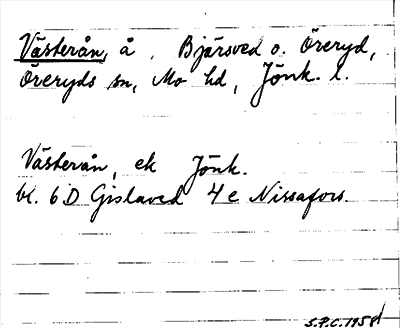 Västerån, å, Bjärsved o. Öreryd,
Öreryds sn, Mo hd, Jönk. l.
Västerån, ek Jönk.
bl. 6 D Gislaved 4 e Nissafors.
S.P.C. 1958